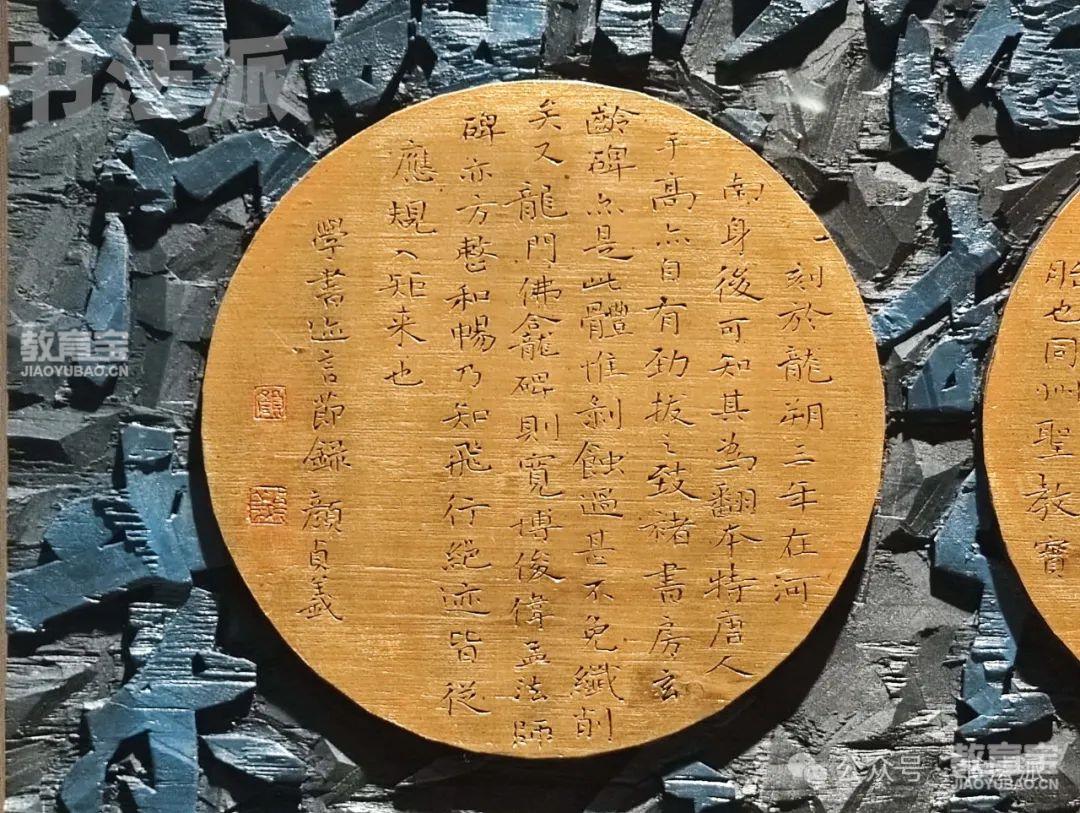 书法派
胎也同州聖教實
刻於龍朔三年在河
南身後可知其為翻本特唐人
手高亦自有勁拔之致褚書房玄
齡碑亦是此體惟剝蝕過甚不免纖削
矣又龍門佛龕碑則寬博俊偉孟法師
碑亦方整和暢乃知飛行絕迹皆從
應規入矩来也
學書迩言節錄 顏貞義
教育宝
JIAOYUBAO.CN
公众号
教育宝
JIAOYUBAO.CN